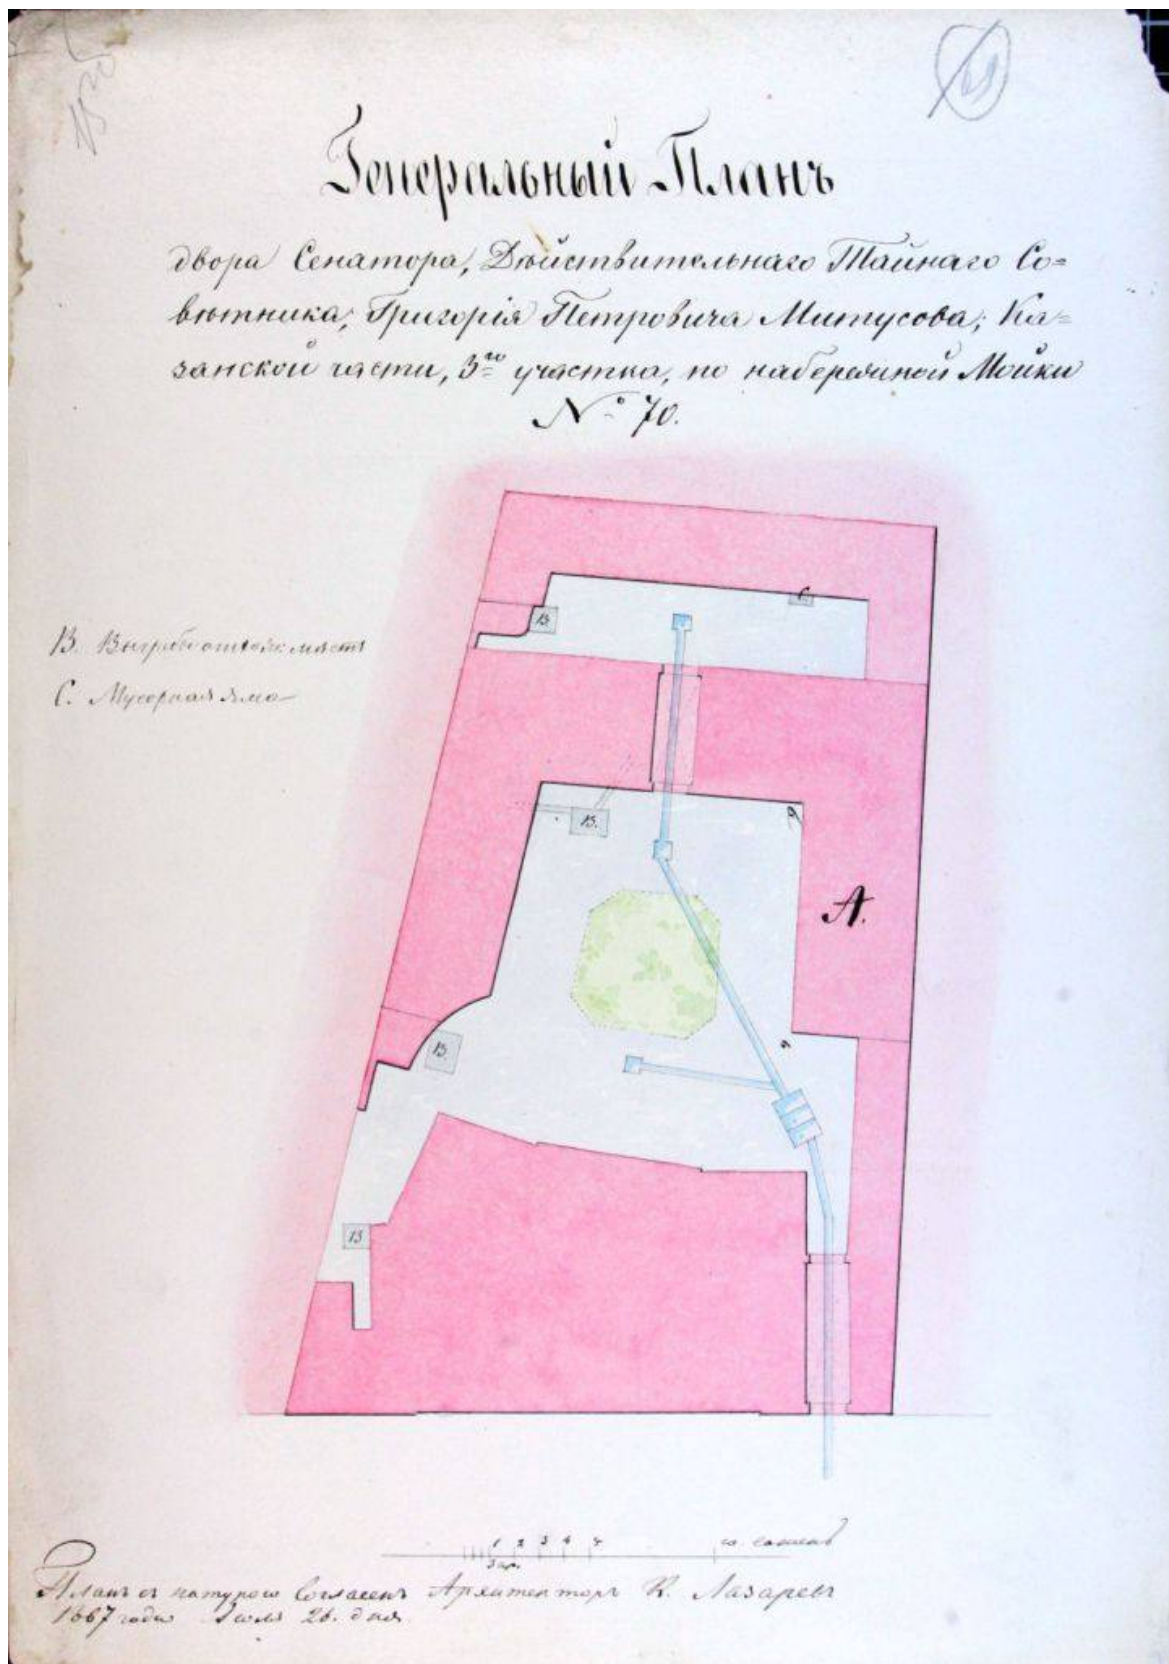 Генеральный Планъ
двора Сенатора, Дѣйствительнаго Тайнаго Со=
вѣтника, Григорія Петровича Митусова; Ка=
занской части, 3го участка, по набережной Мойки
№ 70.
С.
В.
В. Выгреба отхож: мѣстъ
С. Мусорная яма
В.
А.
В.
В
1 2 3 4 5 10. саженъ
3 ар.
Планъ съ натурою согласенъ Архитекторъ К. Лазаревъ
1867 года Іюля 26. дня.